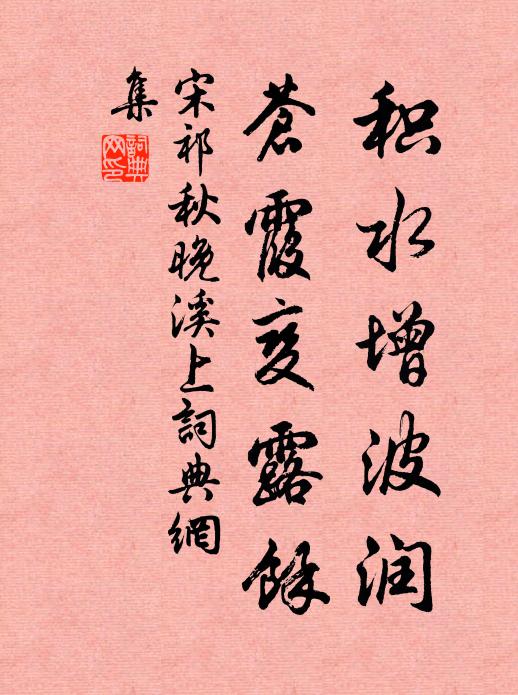 积水增波润
蒼霞变露餘
宋祁秋晚溪上詞典網
集
詞典网印